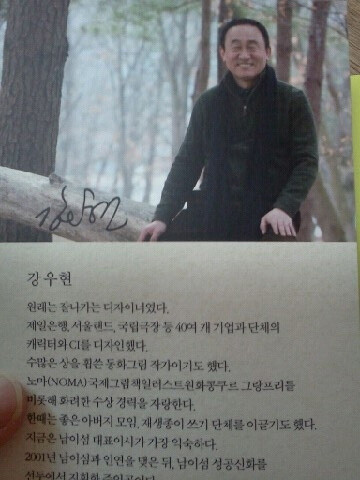 강우현
강우현
원래는 잘나가는 디자이너였다.
제일은행, 서울랜드, 국립극장 등 40여 개 기업과 단체의
캐릭터와 CI를 디자인했다.
수많은 상을 휩쓴 동화그림 작가이기도 했다.
노마(NOMA) 국제그림책일러스트원화콩쿠르 그랑프리를
비롯해 화려한 수상 경력을 자랑한다.
한때는 좋은아버지 모임, 재생종이 쓰기 단체를 이끌기도 했다.
지금은 남이섬 대표이사가 가장 익숙하다.
2001년 남이섬과 인연을 맺은 뒤, 남이섬 성공신화를